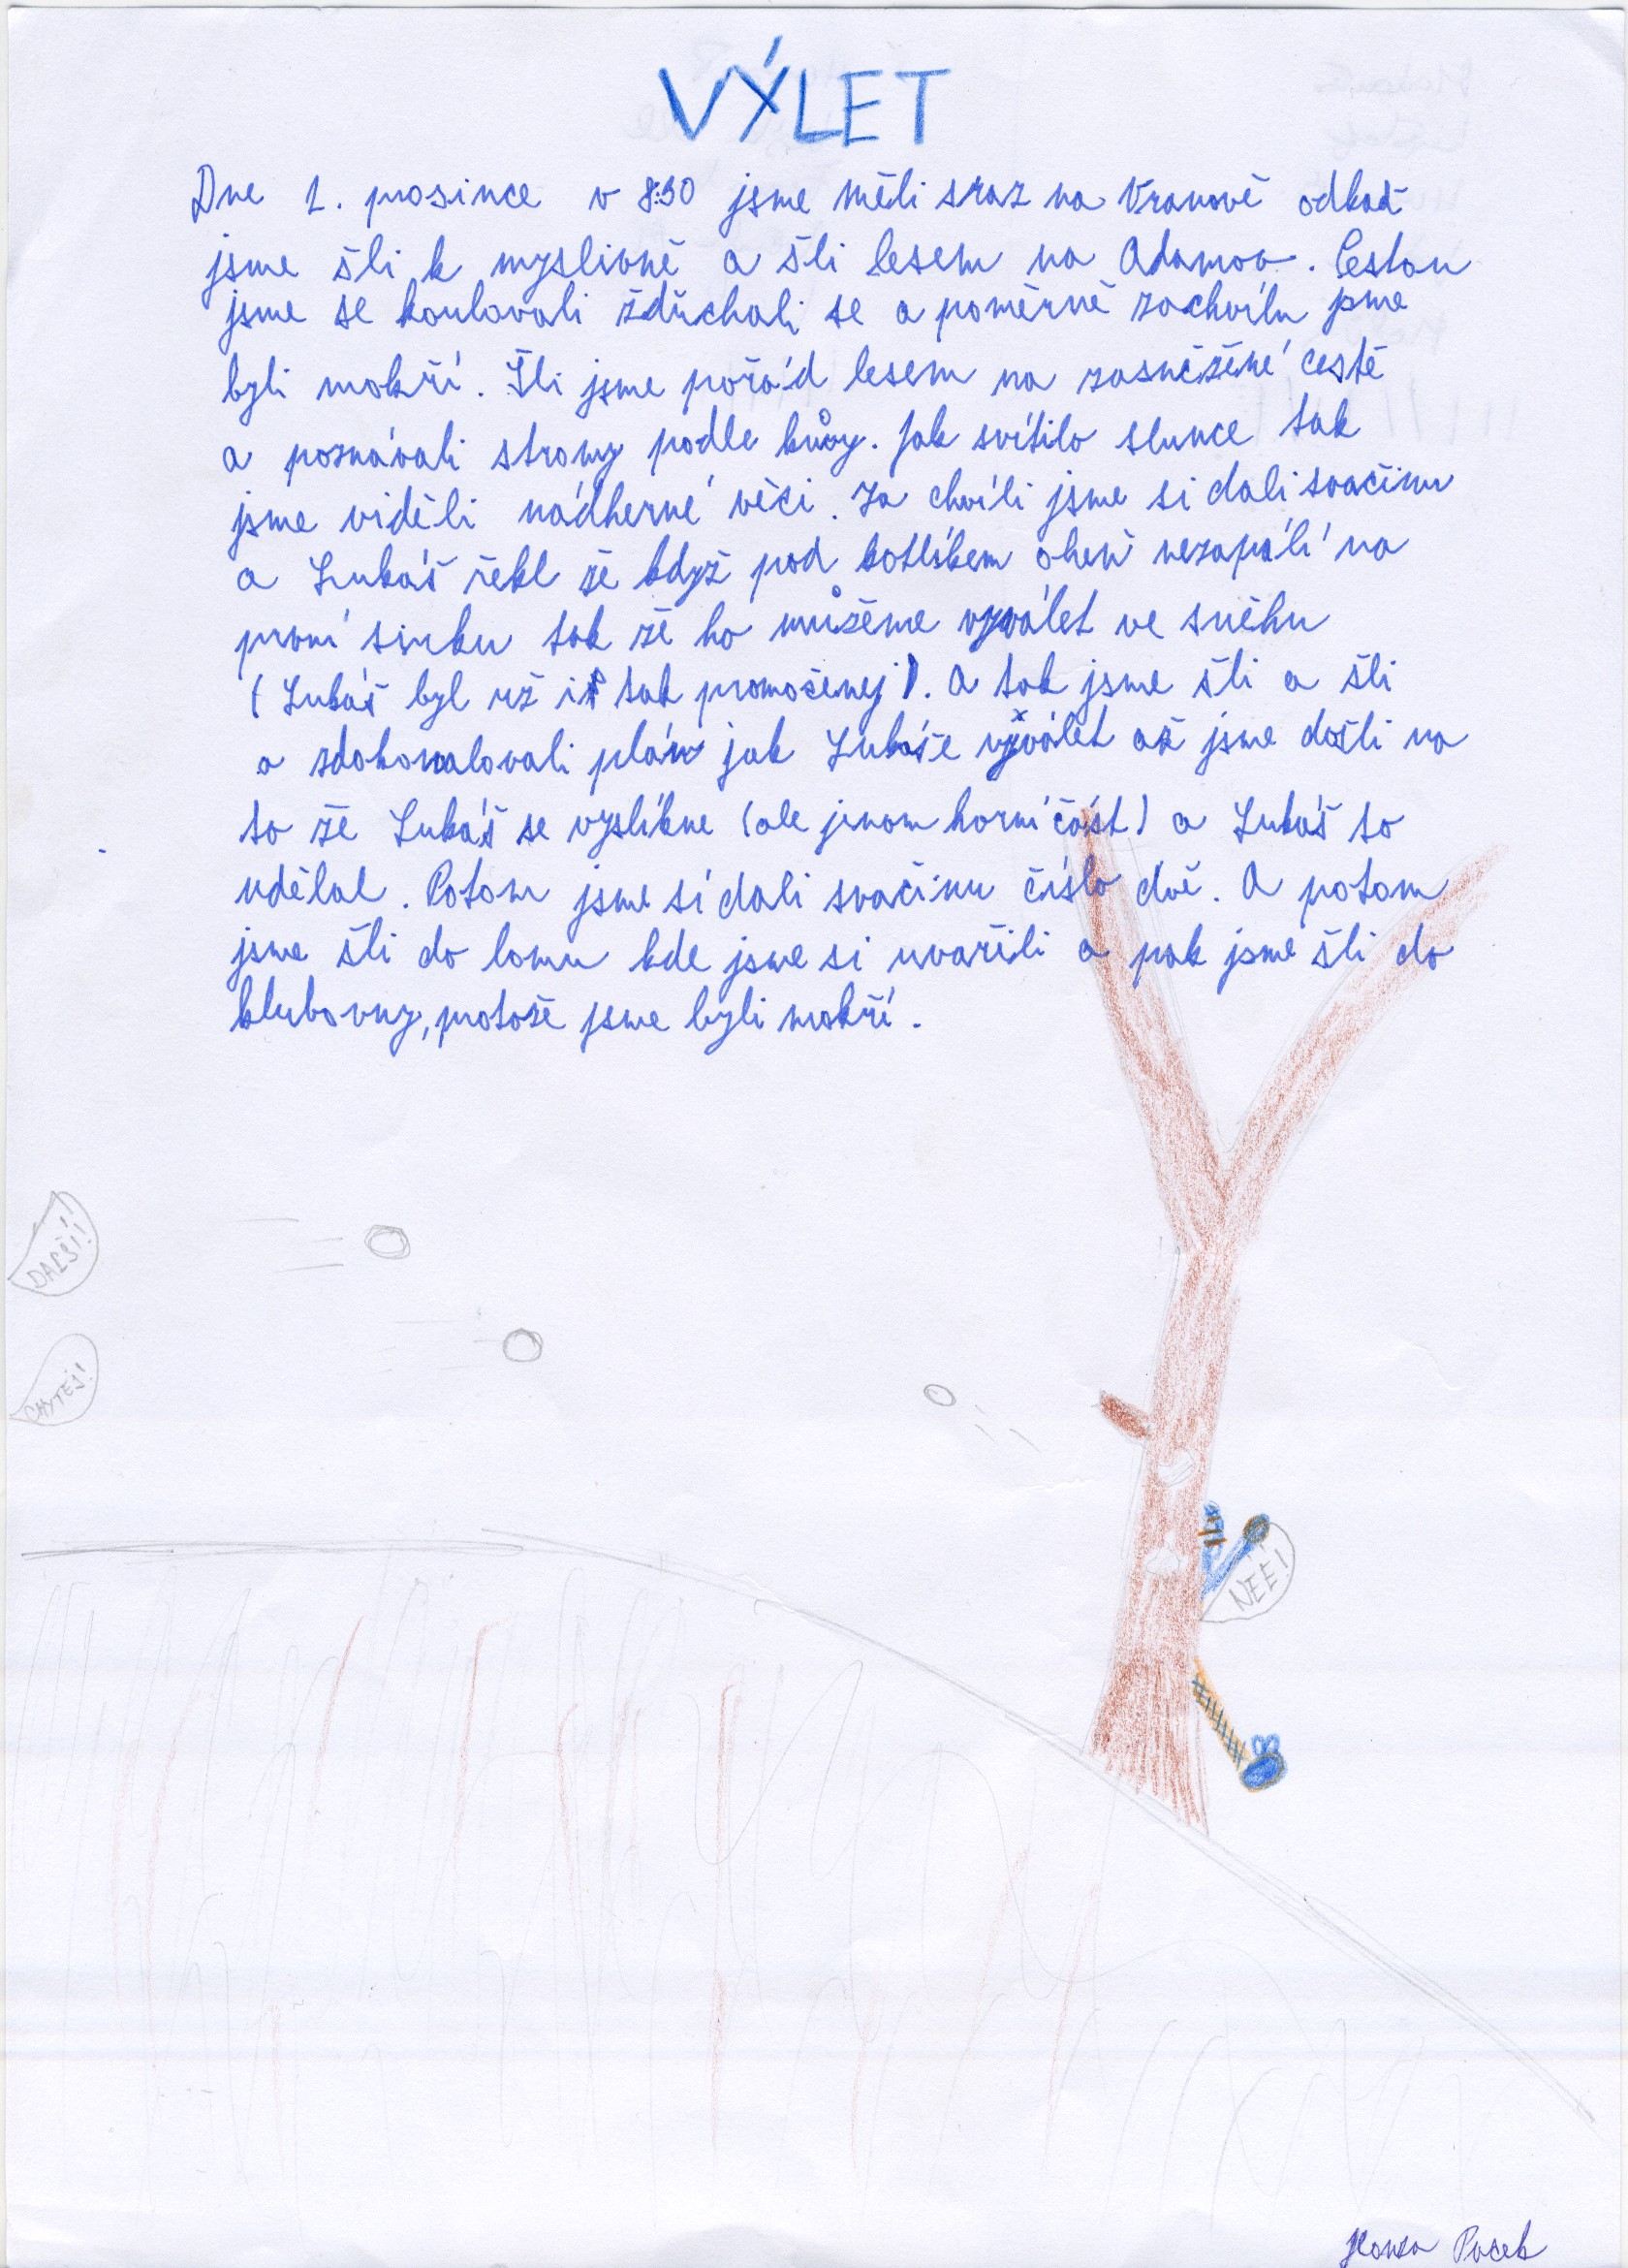 VÝLET
Dne 1. prosince v 8:30 jsme měli sraz na Vranově odkaď
jsme šli k myslivně a šli lesem na Adamov. Cestou
jsme se koulovali žďuchali se a poměrně zachvílu jsme
byli mokří. Šli jsme pořád lesem na zasněžené cestě
a poznávali stromy podle kůry. Jak svítilo slunce tak
jsme viděli nádherné věci. Za chvíli jsme si dali svačinu
a Lukáš řekl že když pod kotlíkem oheň nezapálí na
první sirku tak že ho můžeme vyválet ve sněhu
(Lukáš byl už i tak promočenej). A tak jsme šli a šli
a zdokonalovali plán jak Lukáše vyválet až jsme došli na
to že Lukáš se vyslíkne (ale jenom horní část) a Lukáš to
udělal. Potom jsme sí dali svačinu číslo dvě. A potom
jsme šli do lomu kde jsme si uvařili a pak jsme šli do
klubovny, protože jsme byli mokří.
DALŠÍ!
CHYTEJ!
NÉÉ!
Honza Pacek